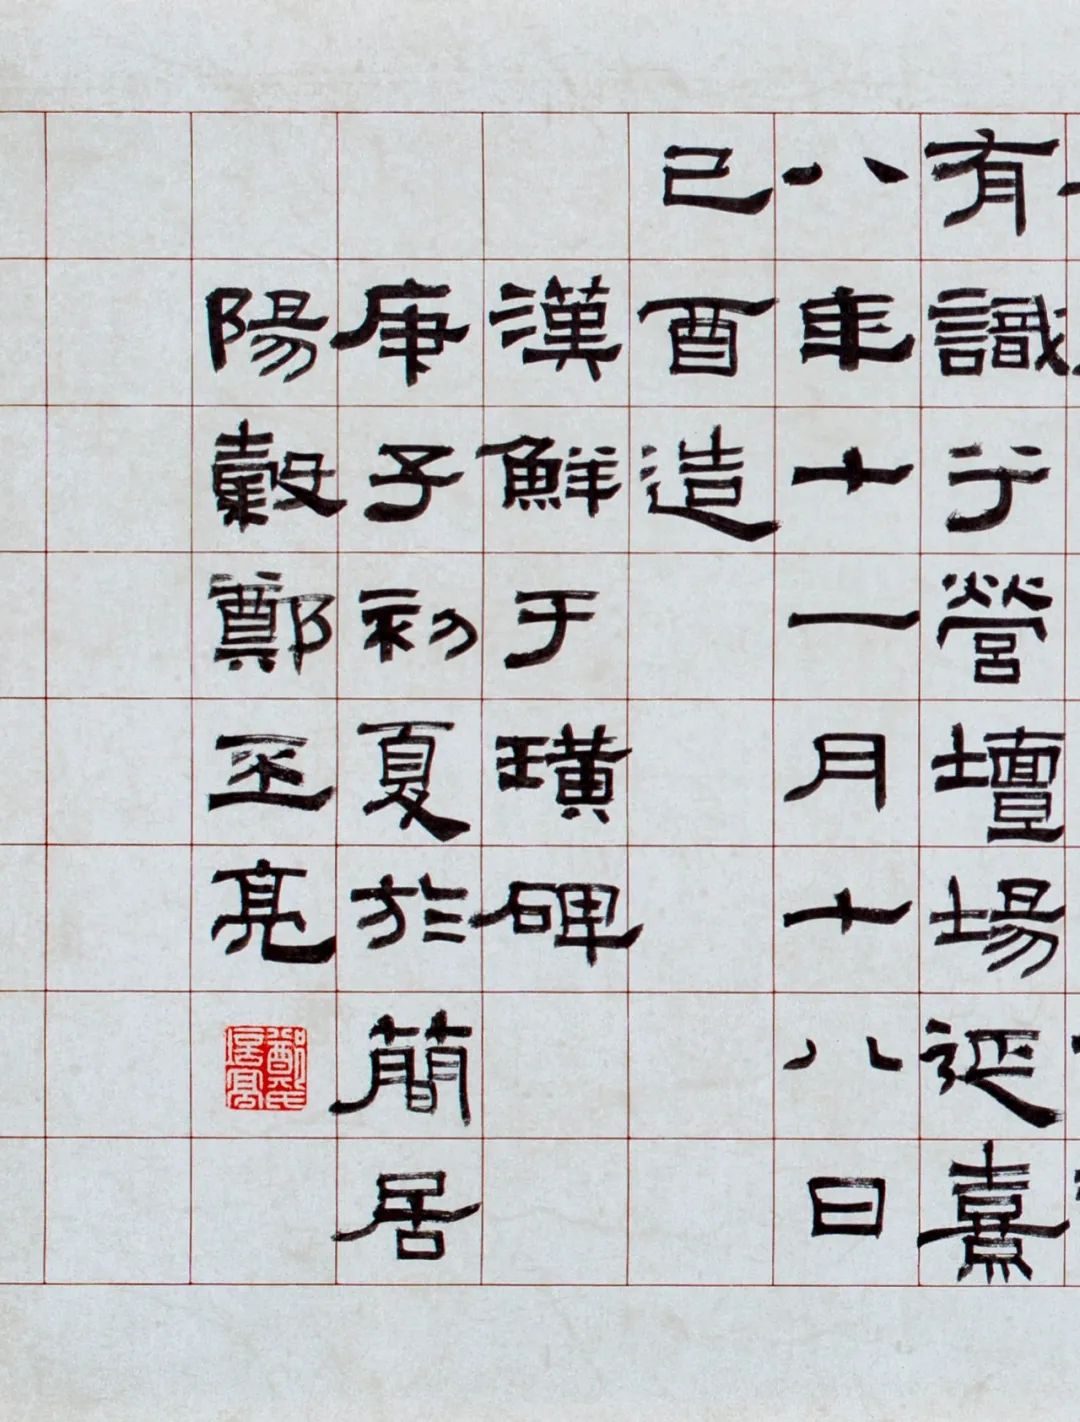 有識亍營壇場延熹
八年十一月十八日
己酉造
漢鮮于璜碑
庚子初夏於簡居
陽穀鄭丕亮